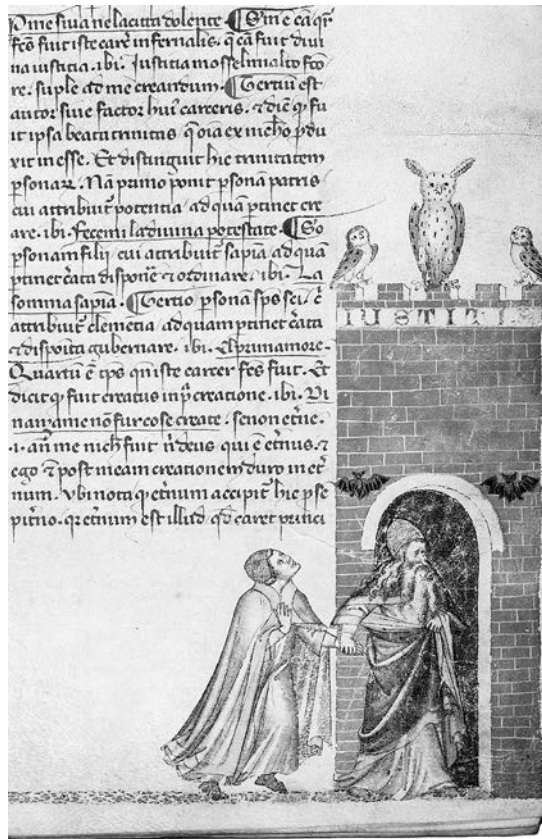 P me si va ne la citta dolente. ¶ Sin e cā qr
fcō fuit iste carc̄ infernalis. q̄ cā fuit divi
na iustitia. ibi. Iustitia mosse lmio alto fcto
re. suple ad me creandum. ¶ Tertiū est
autor siue factor huiꝰ carceris. ⁊ dic̄ ꝙ fu
it ipsa beata trinitas q̄ oīa ex nichō pdu
xit in esse. Et distinguit hic trinitatem
psonaꝝ. Nā primo ponit psonā patris
cui attribuit̄ potentia. ad quā ptinet cre
are. ibi. fecemi la divina potestate. ¶ So
psonam filii. cui attribuit̄ sapiā. ad quā
ptinet c̄ata disponē ⁊ ordinare. ibi. La
somma sapiā. ¶ Tertio psonā sps sci. c̄
attribuit̄ clemētia. ad quam ptinet c̄ata
⁊ disposita gubernare. ibi. El primo amore.
Quartū ē tps qn̄ iste carcer fc̄s fuit. Et
dicit ꝙ fuit creatus in p̄ creatione. ibi. Di
nançi a me non fur cose create. se non et̄ne.
.i. an̄ me nich̄ fuit n̄ deus qui ē et̄nus. ⁊
ego ⁊ post meam creationem duro in et̄
num. Vbi nota ꝙ et̄num accipit̄ hic p se
pit̄no. qr et̄num est illud qd̄ caret princi
IUSTITIA